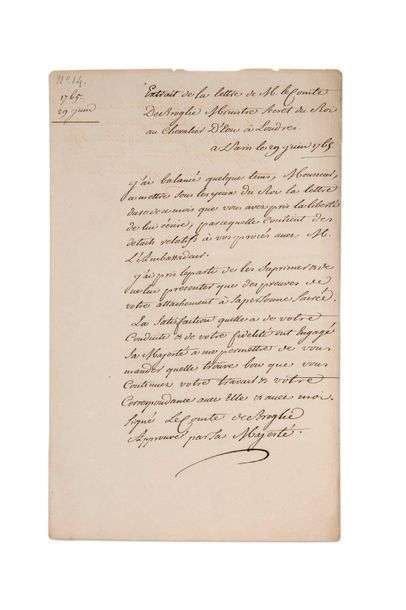 N.º 14.
1765.
29 juin
Extrait de la lettre de M. le Comte
De Broglie Ministre Secret du Roi
au Chevalier D'Eon à Londres
a Paris le 29 juin 1765
j'ai balancé quelque tems, Monsieur,
a mettre sous les yeux du Roi la lettre
du mois que vous avez pris la liberté
de lui écrire, parcequelle contient des
détails relatifs à vos procés avec M.
L'Ambassadeur.
j'ai pris le parti de les suprimer & de
ne lui présenter que des preuves de
votre attachement à sa personne Sacrée.
La satisfaction quelle a de votre
Conduite & de votre fidélité ont engagé
Sa Majesté à me permettre de vous
mander quelle trouve bon que vous
Continuez votre travail & votre
Correspondance avec elle & avec moi.
Signé Le Comte de Broglie
Approuvé par Sa Majesté.